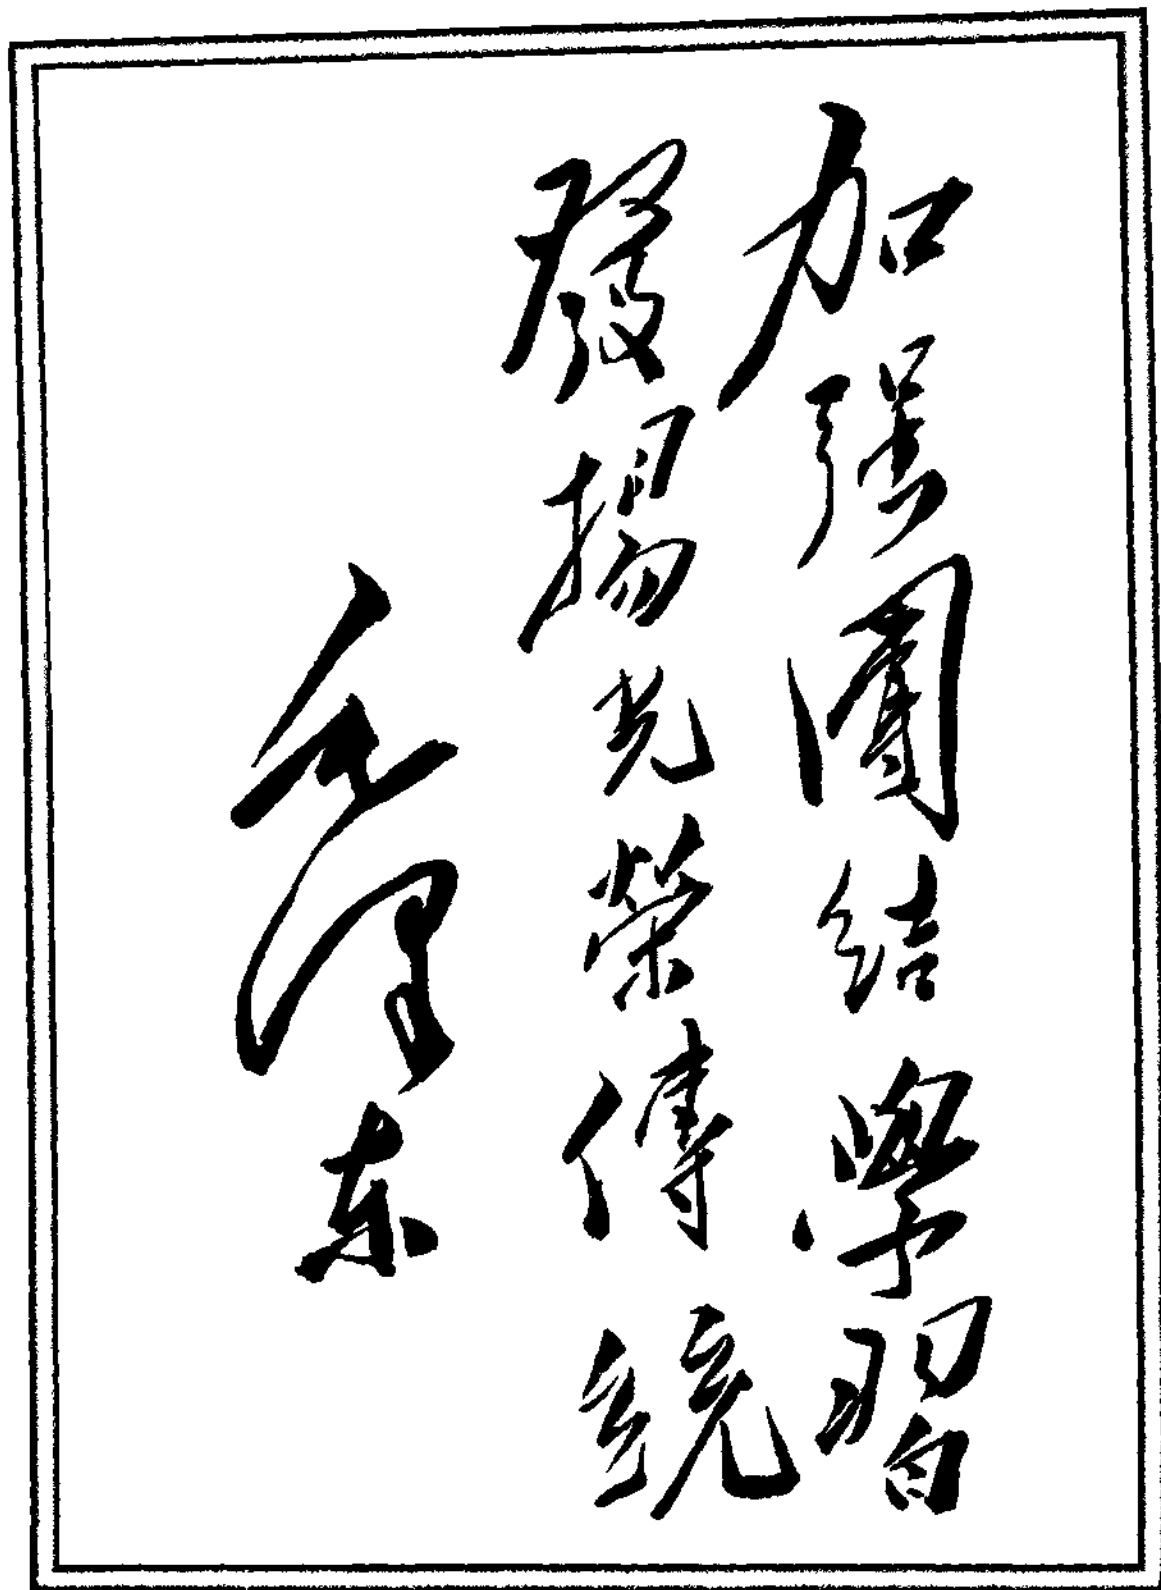 加强團结學習
發揚光榮傳統
毛澤东